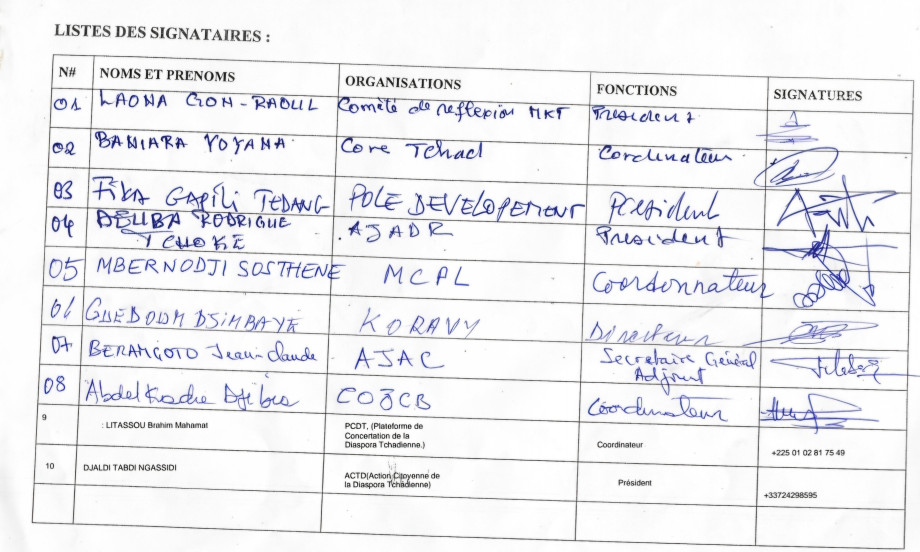 LISTES DES SIGNATAIRES :
N# NOMS ET PRENOMS ORGANISATIONS FONCTIONS SIGNATURES
01 LAONA GON-RAOUL Comité de reflexion MKT President
02 BANIARA YOYANA Core Tchad Cordinateur
03 FIKA GAPILI TEDANG POLE DEVELOPEMENT President
04 DEUBA RODRIGUE AJADR President
TCHOKE
05 MBERNODJI SOSTHENE MCPL Coordonnateur
06 GUEDOUM DJIMBAYE KORAVY Directeur
07 BERAMGOTO Jean-claude AJAC Secretaire Général
Adjoint
08 Abdel Kadre Djibia COJCB Coordinateur
9 : LITASSOU Brahim Mahamat PCDT, (Plateforme de
Concertation de la
Diaspora Tchadienne.) Coordinateur +225 01 02 81 75 49
10 DJALDI TABDI NGASSIDI ACTD(Action Citoyenne de
la Diaspora Tchadienne) Président +33724298595